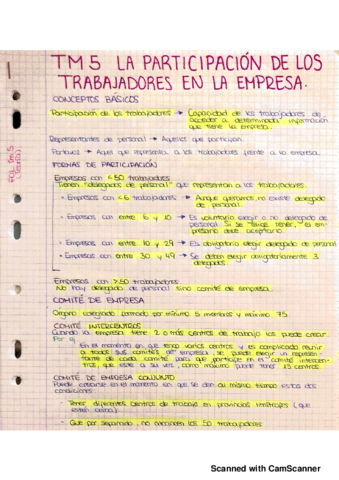 TM 5 LA PARTICIPACIÓN DE LOS
TRABAJADORES EN LA EMPRESA.
CONCEPTOS BÁSICOS
Participación de los trabajadores → Capacidad de los trabajadores de
acceder a determinada información
que tiene la empresa.
Representantes de personal → Aquellos que participan.
Portavoz → Aquel que representa a los trabajadores frente a la empresa.
FORMAS DE PARTICIPACIÓN
Empresas con <50 trabajadores
Tienen "delegados de personal" que representan a los trabajadores.
- Empresas con <6 trabajadores → Aunque queramos, no existe delegado
de personal.
- Empresas con entre 6 y 10 → Es voluntario elegir o no delegado de
personal. Si se elige tener, el em-
presario debe aceptarlo
- Empresas con entre 10 y 29 → Es obligatorio elegir delegado de personal
- Empresas con entre 30 y 49 → Se deben elegir obligatoriamente 3
delegados.
Empresas con >50 trabajadores
No hay delegado de personal sino comité de empresa.
COMITÉ DE EMPRESA
Órgano colegiado formado por mínimo 5 miembros y máximo 75
COMITÉ INTERCENTROS
Cuando la empresa tiene 2 o más centros de trabajo los puede crear.
Por ej
En el momento en que tengo varios centros y es complicado reunir
a todos sus comités de empresa, se puede elegir un represen-
tante de cada comité para que participe en el comité intercen-
tros, que este a su vez, como máximo puede tener 13 centros
COMITÉ DE EMPRESA CONJUNTO
Puede crearse en el momento en que se den al mismo tiempo estas dos
condiciones:
- Tener diferentes centros de trabajo en provincias limítrofes (que
estén cerca)
- Que por separado, no asciendan los 50 trabajadores
FOL Tm.5
(Teoría)
Scanned with CamScanner